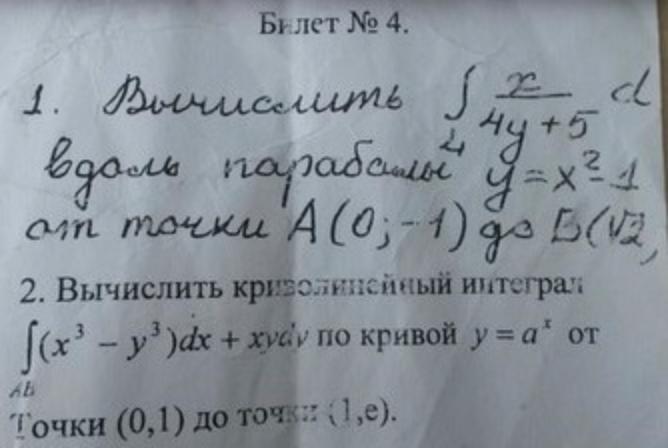 Билет № 4.
1. Вычислить ∫ x / 4y + 5 d
вдоль параболы y = x² - 1
от точки A (0; -1) до Б(√2,
2. Вычислить криволинейный интеграл
∫(x³ − y³)dx + xydy по кривой y = aˣ от
AB
Точки (0,1) до точки (1,e).